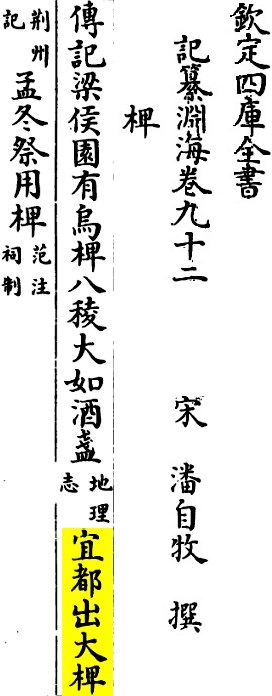 欽定四庫全書
記纂淵海卷九十二
宋 潘自牧 撰
椑
傳記梁侯園有烏椑八稜大如酒盞地理志宜都出大椑
荆州記孟冬祭用椑范注祠制